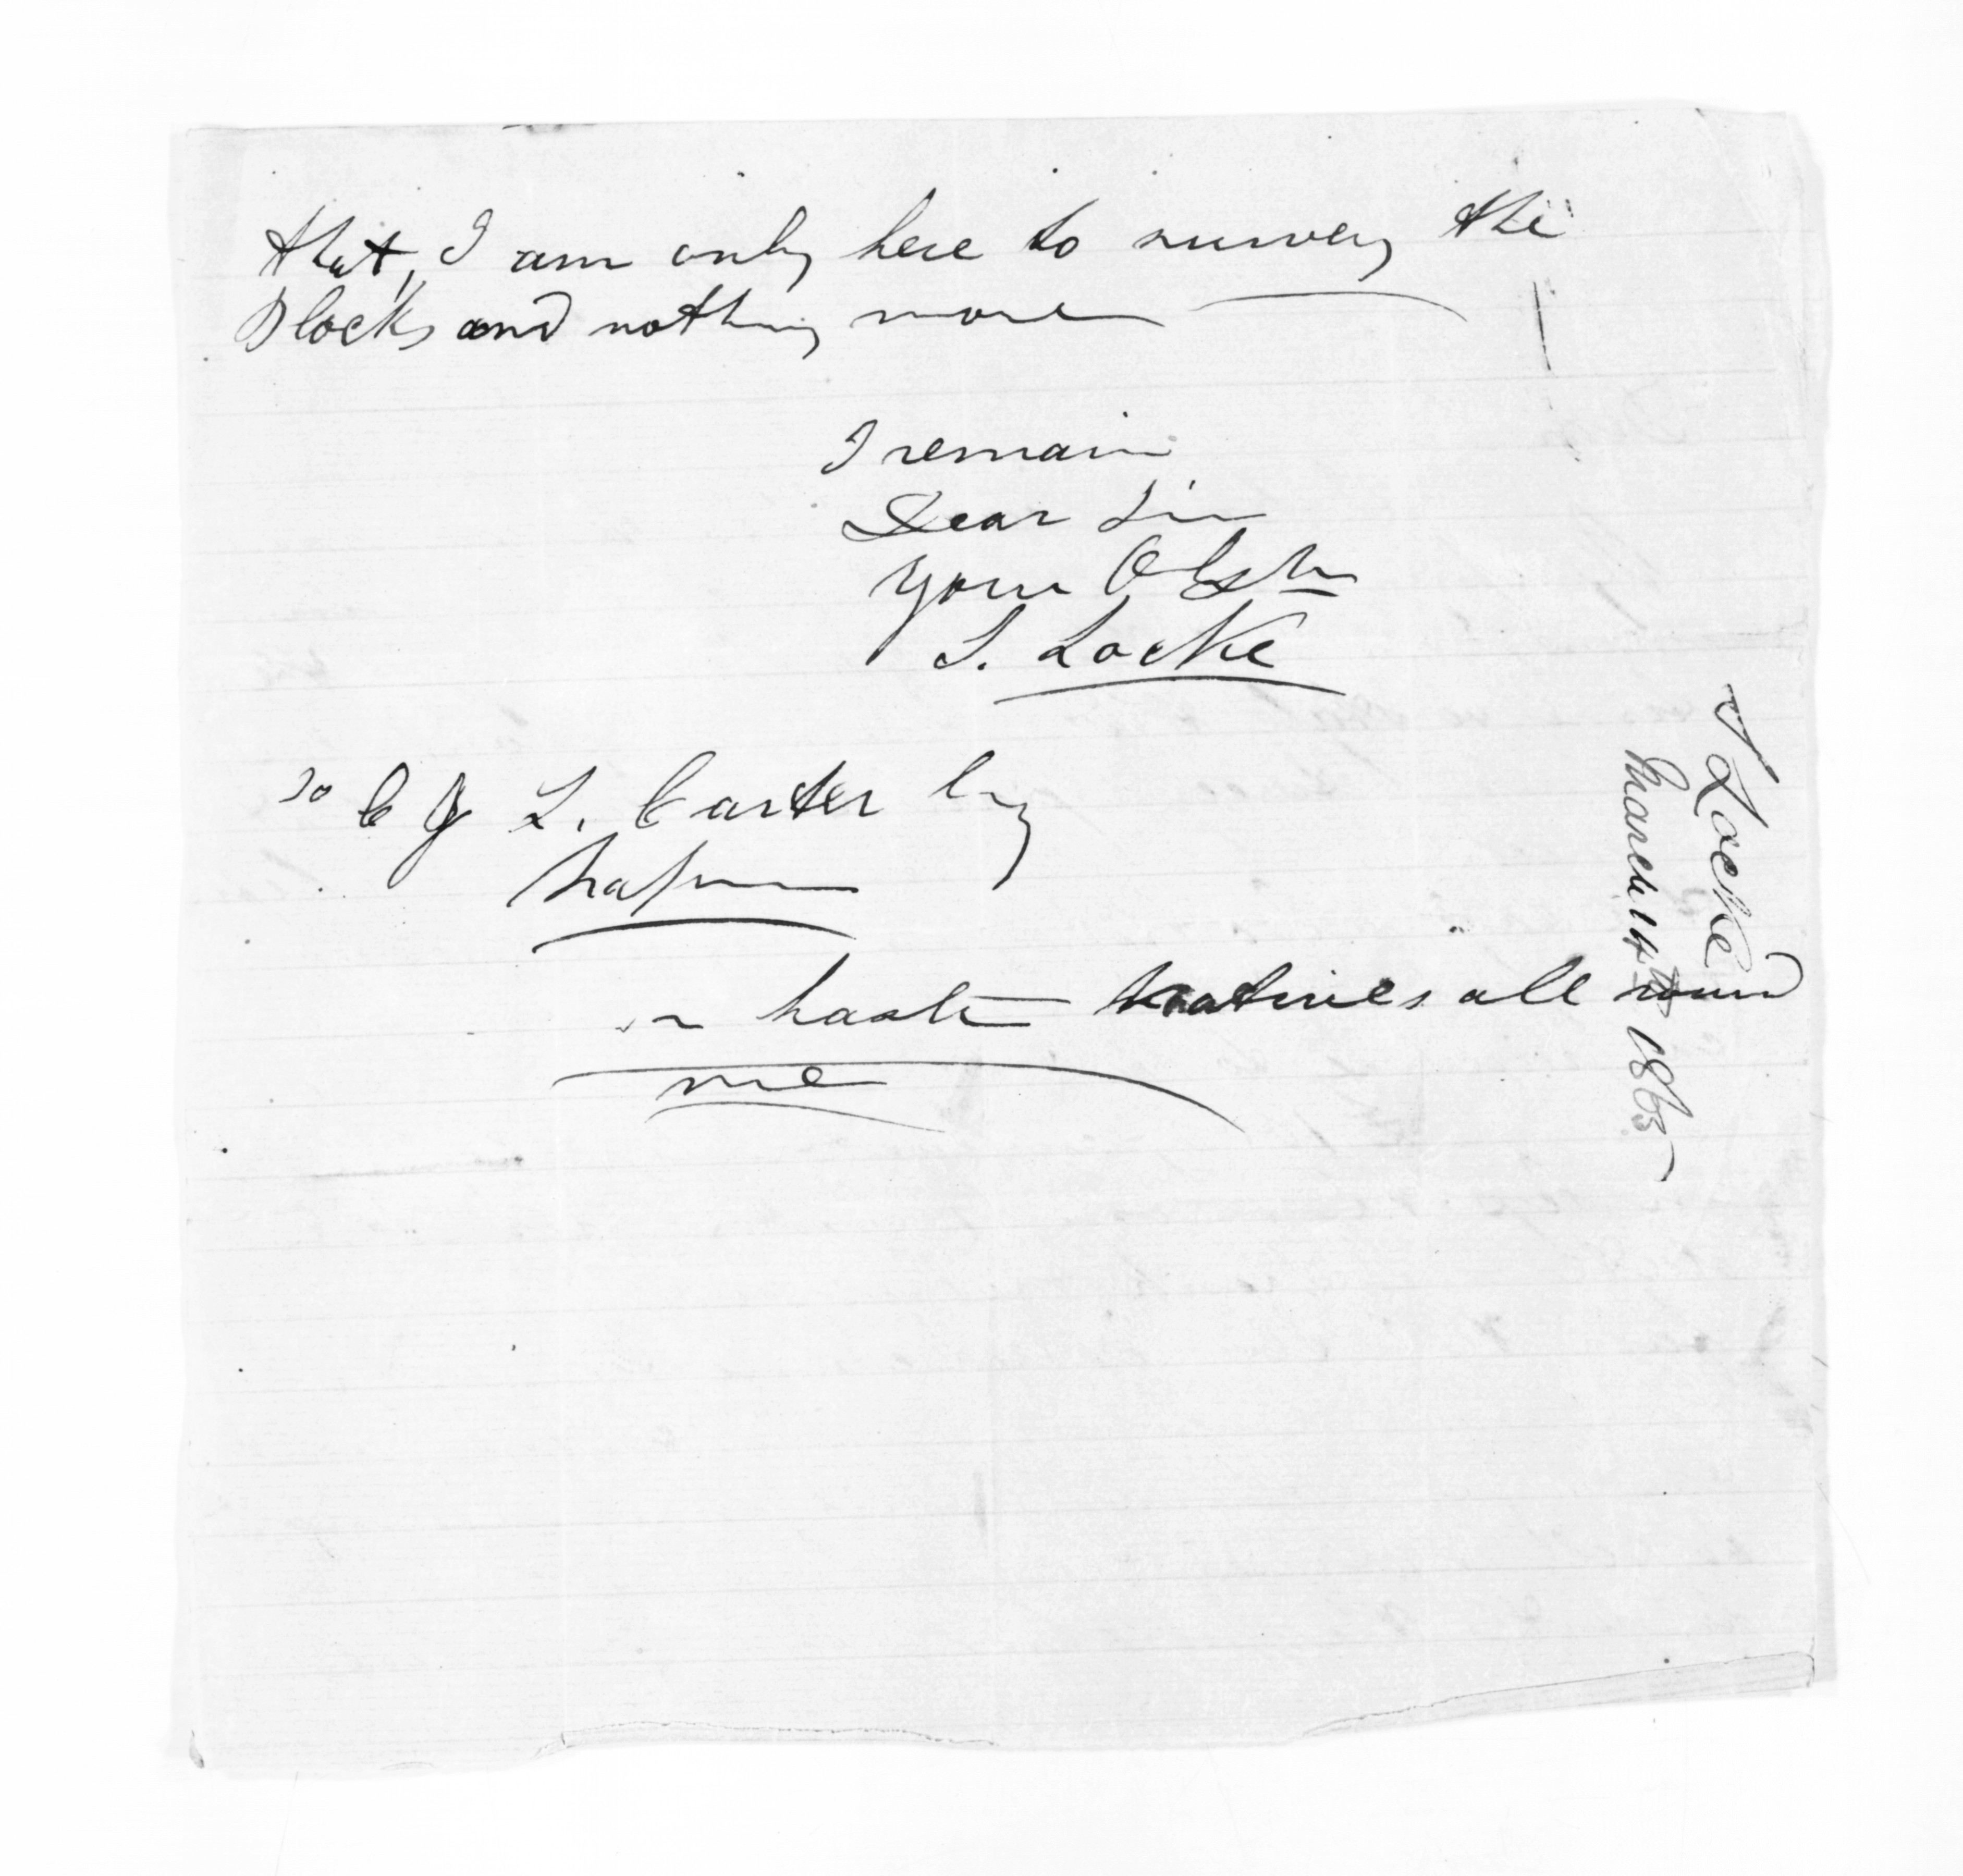 that, I am only here to survey the
Blocks and nothing more
I remain
Dear Sir
Your Obst
S. Locke
To C J L. Carter Esq
Napier
in haste natives all round
me
S Locke
March 14th 1865